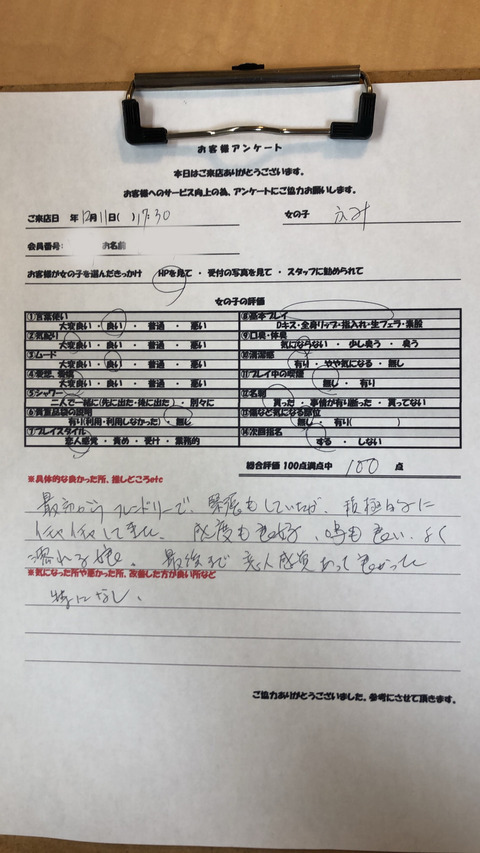 お客様アンケート
本日はご来店ありがとうございます。
お客様へのサービス向上の為、アンケートにご協力お願いします。
ご来店日 年 12月 11日( ) 17:30 女の子
会員番号: お名前
お客様が女の子を選んだきっかけ HPを見て ・ 受付の写真を見て ・ スタッフに勧められて
女の子の評価
①言葉使い ⑧基本プレイ
大変良い ・ 良い ・ 普通 ・ 悪い Dキス・全身リップ・指入れ・生フェラ・素股
②気配り ⑨口臭・体臭
大変良い ・ 良い ・ 普通 ・ 悪い 気にならない ・ 少し臭う ・ 臭う
③ムード ⑩清潔感
大変良い ・ 良い ・ 普通 ・ 悪い 有り ・ やや気になる ・ 無し
⑪プレイ中の喫煙
大変良い ・ 良い ・ 普通 ・ 悪い 無し ・ 有り
⑤シャワー ⑫名刺
二人で一緒に(先に出た・後に出た) ・ 別々に 貰った ・ 事情が有り断った ・ 貰ってない
⑥貴重品袋の説明 ⑬傷など気になる部位
有り(利用・利用しなかった) ・ 無し 無し ・ 有り( )
⑦プレイスタイル ⑭次回指名
恋人感覚 ・ 責め ・ 受け ・ 業務的 する ・ しない
総合評価 100点満点中 100 点
※具体的な良かった所、推しどころetc
最初からフレンドリーで、緊張もしていたが、積極的に
イチャイチャしてきた。感度も良好、鳴も良い、よく
濡れる娘。最後まで恋人感覚あって良かった
※気になった所や悪かった所、改善した方が良い所など
特になし、
ご協力ありがとうございました。参考にさせて頂きます。